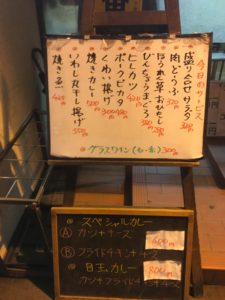 今日のサービス
盛り合せサラダ 320
肉どうふ 370
ほうれん草おひたし
びんちょうまぐろ
ヒレカツ
ポークピカタ 480
くわい揚げ 300
焼きカレー 500
いわし丸干し揚げ 350
焼き魚 400
グラスワイン(白・赤) 300
スペシャルカレー
Ⓐ カツ+チーズ 600円
Ⓑ フライドチキン+チーズ
目玉カレー 800円
カツ+フライドチキン+チーズ